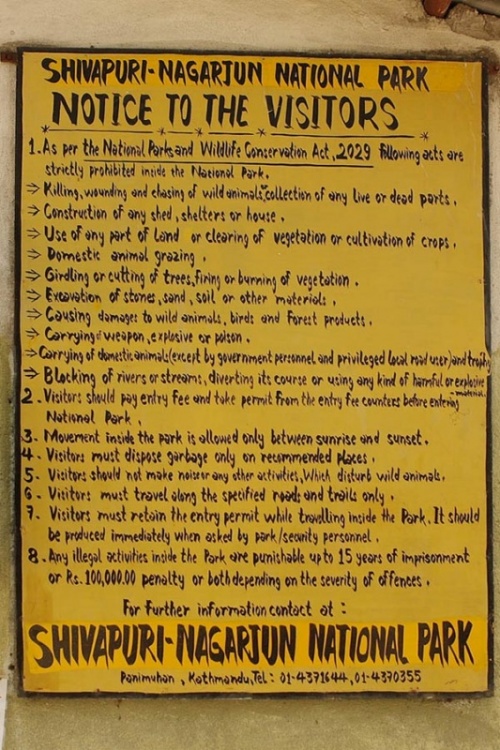 SHIVAPURI-NAGARJUN NATIONAL PARK
NOTICE TO THE VISITORS
1. As per the National Parks and Wildlife Conservation Act, 2029 following acts are
strictly prohibited inside the National Park.
⇒ Killing, wounding and chasing of wild animals, collection of any live or dead parts.
⇒ Construction of any shed, shelters or house.
⇒ Use of any part of land or clearing of vegetation or cultivation of crops.
⇒ Domestic animal grazing.
⇒ Girdling or cutting of trees, firing or burning of vegetation.
⇒ Excavation of stones, sand, soil or other materials.
⇒ Causing damages to wild animals, birds and forest products.
⇒ Carrying weapon, explosive or poison.
⇒ Carrying of domestic animals (except by government personnel and privileged local road user) and trophy
⇒ Blocking of rivers or streams, diverting its course or using any kind of harmful or explosive
-material.
2. Visitors should pay entry fee and take permit from the entry fee counters before entering
National Park.
3. Movement inside the park is allowed only between sunrise and sunset.
4. Visitors must dispose garbage only on recommended places.
5. Visitors should not make noise or any other activities, Which disturb wild animals.
6. Visitors must travel along the specified roads and trails only.
7. Visitors must retain the entry permit while travelling inside the Park. It should
be produced immediately when asked by park/security personnel.
8. Any illegal activities inside the Park are punishable up to 15 years of imprisonment
or Rs. 100,000.00 penalty or both depending on the severity of offences.
For further information contact at :
SHIVAPURI-NAGARJUN NATIONAL PARK
Panimuhan, Kathmandu, Tel: 01-4371644, 01-4370355